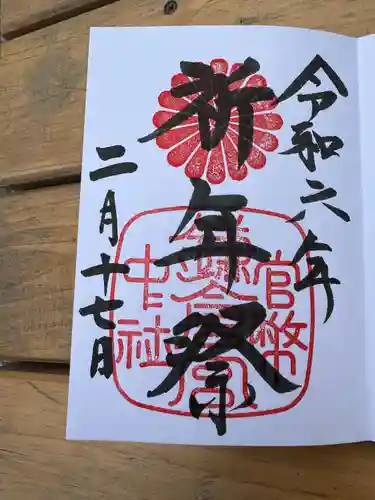 令和六年
祈年祭
二月十七日
官幣
鎌倉宮
中社